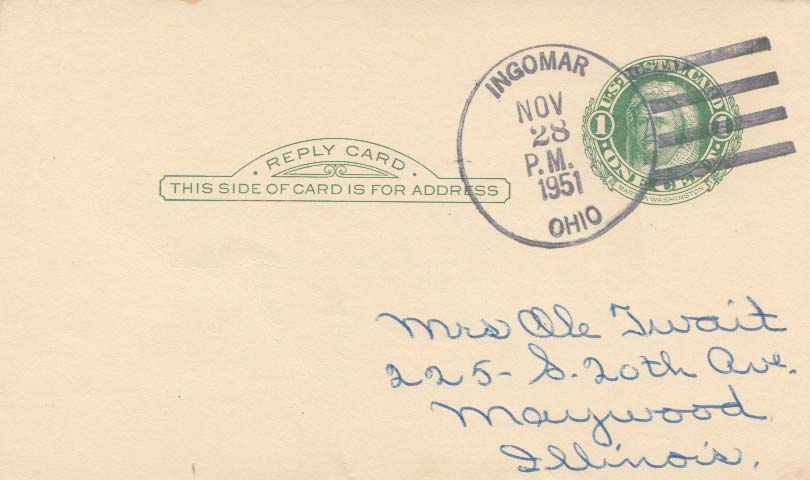 INGOMAR
NOV
28
P.M.
1951
OHIO
U.S. POSTAL CARD
1 1
ONE CENT
MARTHA WASHINGTON
REPLY CARD
THIS SIDE OF CARD IS FOR ADDRESS
Mrs Ole Twait
225- S. 20th Ave.
Maywood
Illinois.